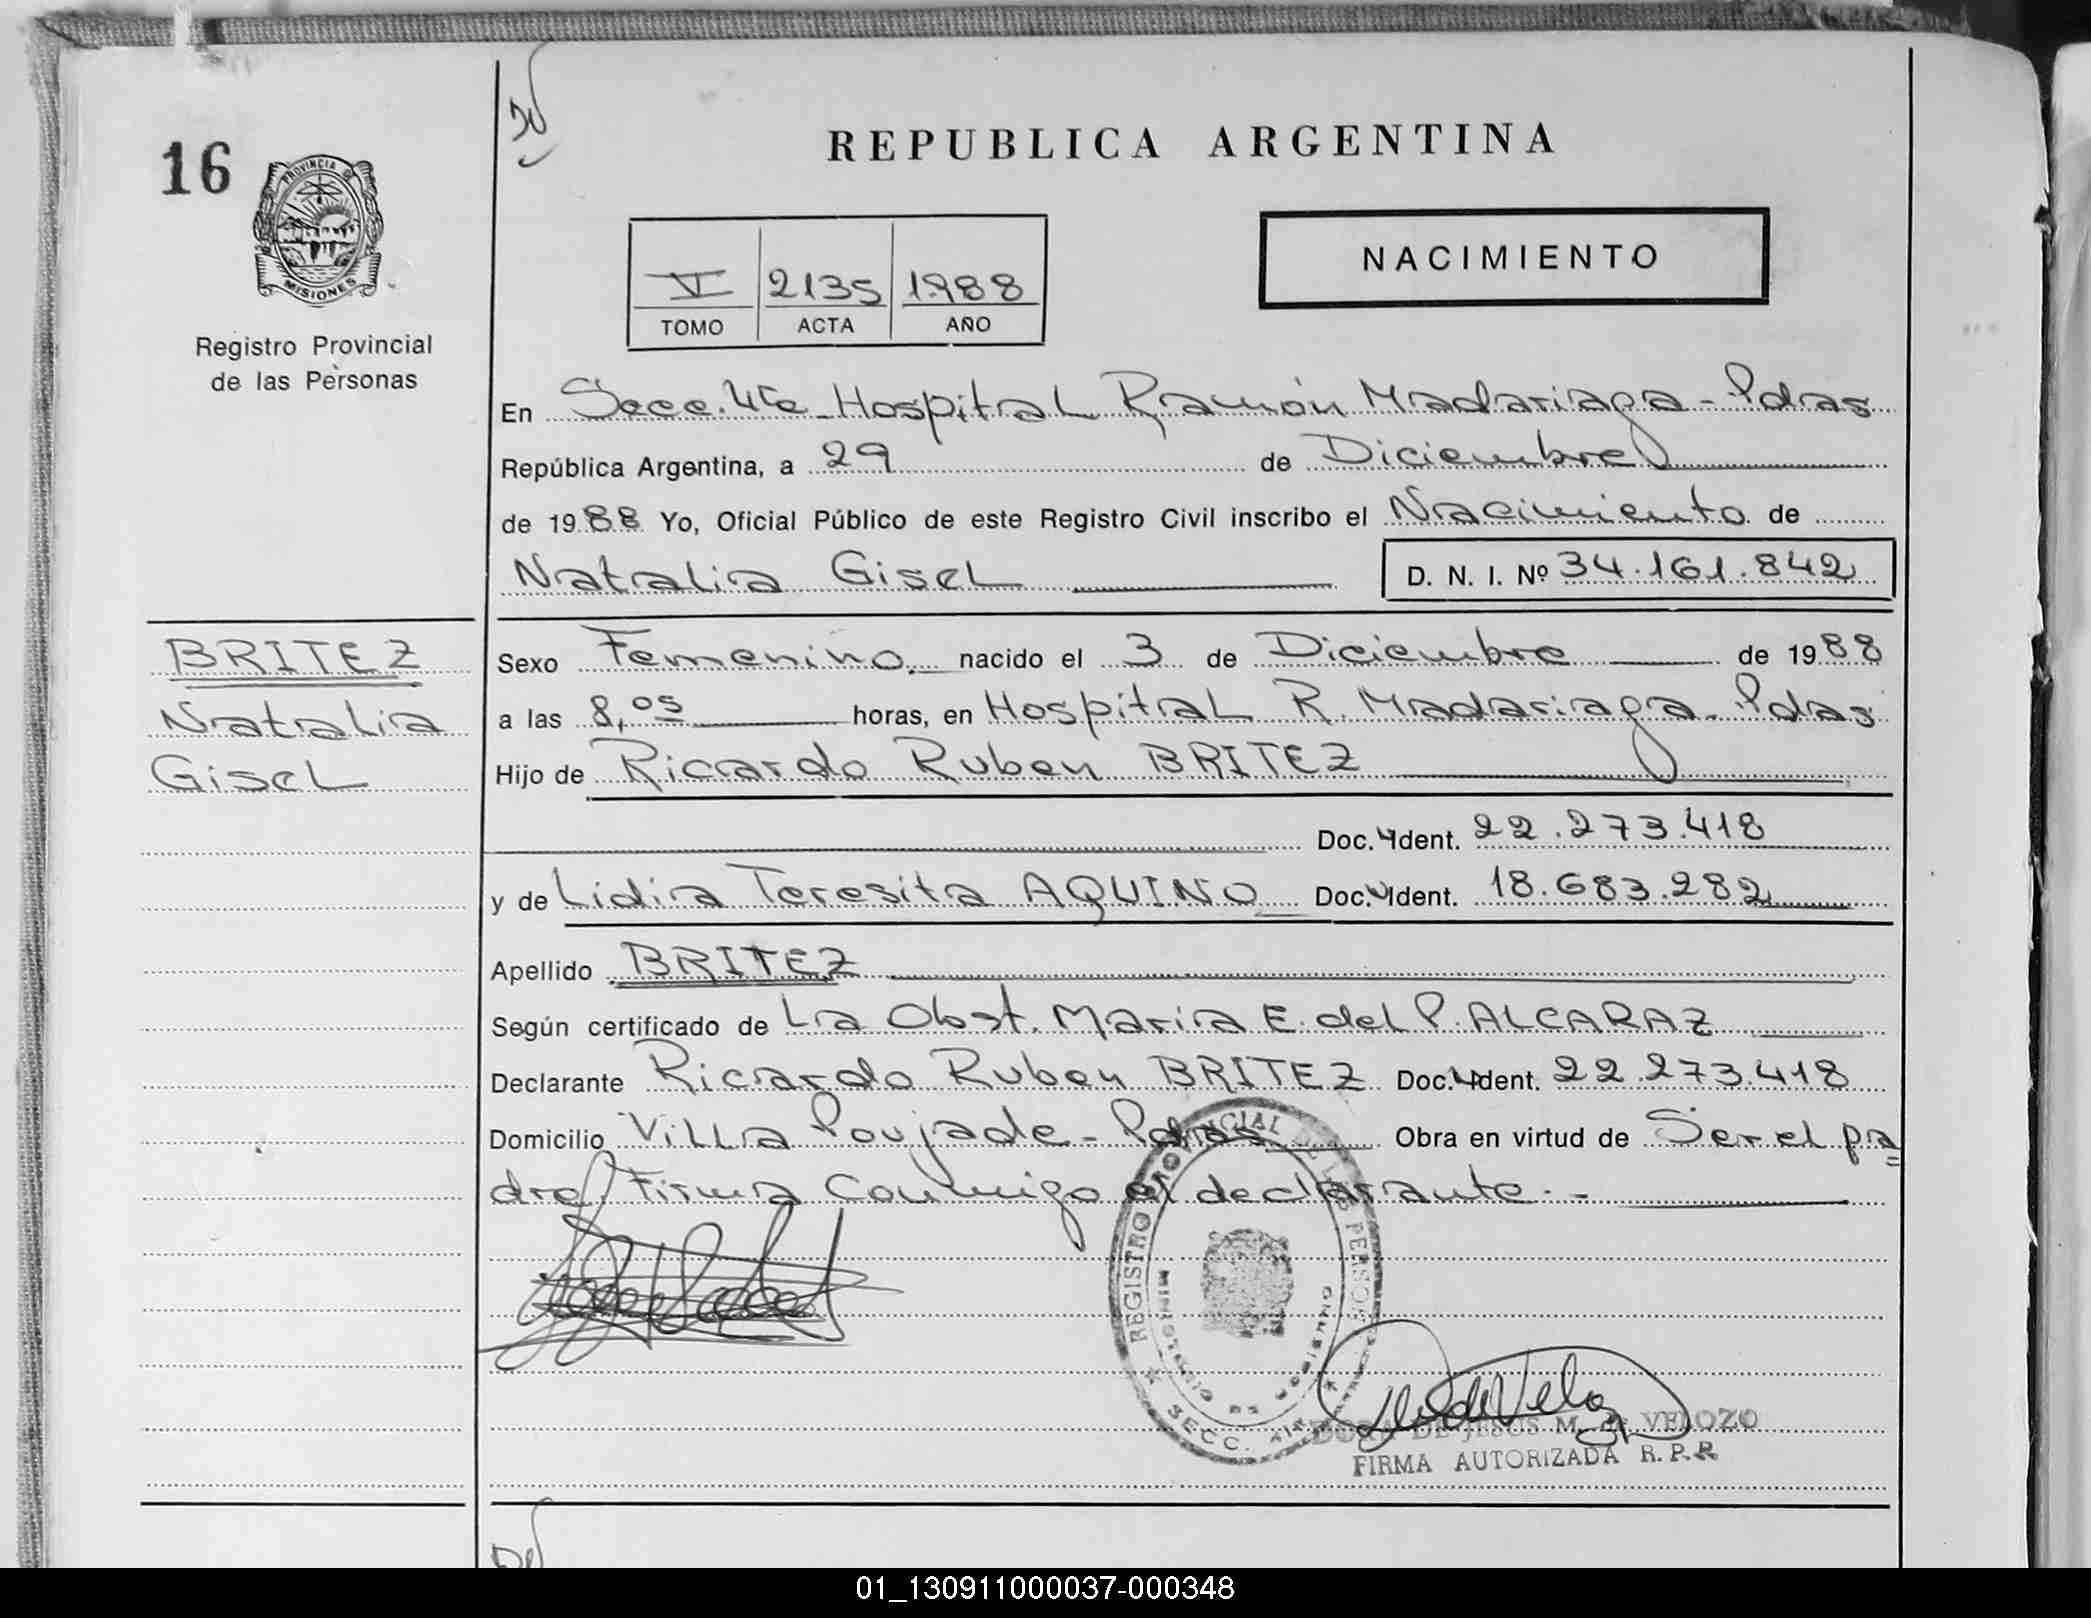 16
PROVINCIA DE
MISIONES
Registro Provincial
de las Personas
REPUBLICA ARGENTINA
NACIMIENTO
V 2135 1988
TOMO ACTA AÑO
En Secc. 4ta Hospital Ramón Madariaga - Pdas
República Argentina, a 29 de Diciembre
de 1988 Yo, Oficial Público de este Registro Civil inscribo el Nacimiento de
Natalia Gisel D. N. I. Nº 34.161.842
BRITEZ
Natalia
Gisel
Sexo Femenino nacido el 3 de Diciembre de 1988
a las 8,05 horas, en Hospital R. Madariaga - Pdas
Hijo de Ricardo Ruben BRITEZ
Doc. Ident. 22.273.418
y de Lidia Teresita AQUINO Doc. Ident. 18.683.282
Apellido BRITEZ
Según certificado de La Obst. Maria E. del P. ALCARAZ
Declarante Ricardo Ruben BRITEZ Doc. Ident. 22.273.418
Domicilio Villa Poujade - Pdas Obra en virtud de Ser el pa=
dre. Firma conmigo el declarante. -
REGISTRO PROVINCIAL DE LAS PERSONAS
MINISTERIO DE GOBIERNO
SECC.
DORA DE JESUS M. de VELOZO
FIRMA AUTORIZADA R. P. P.
01_130911000037-000348